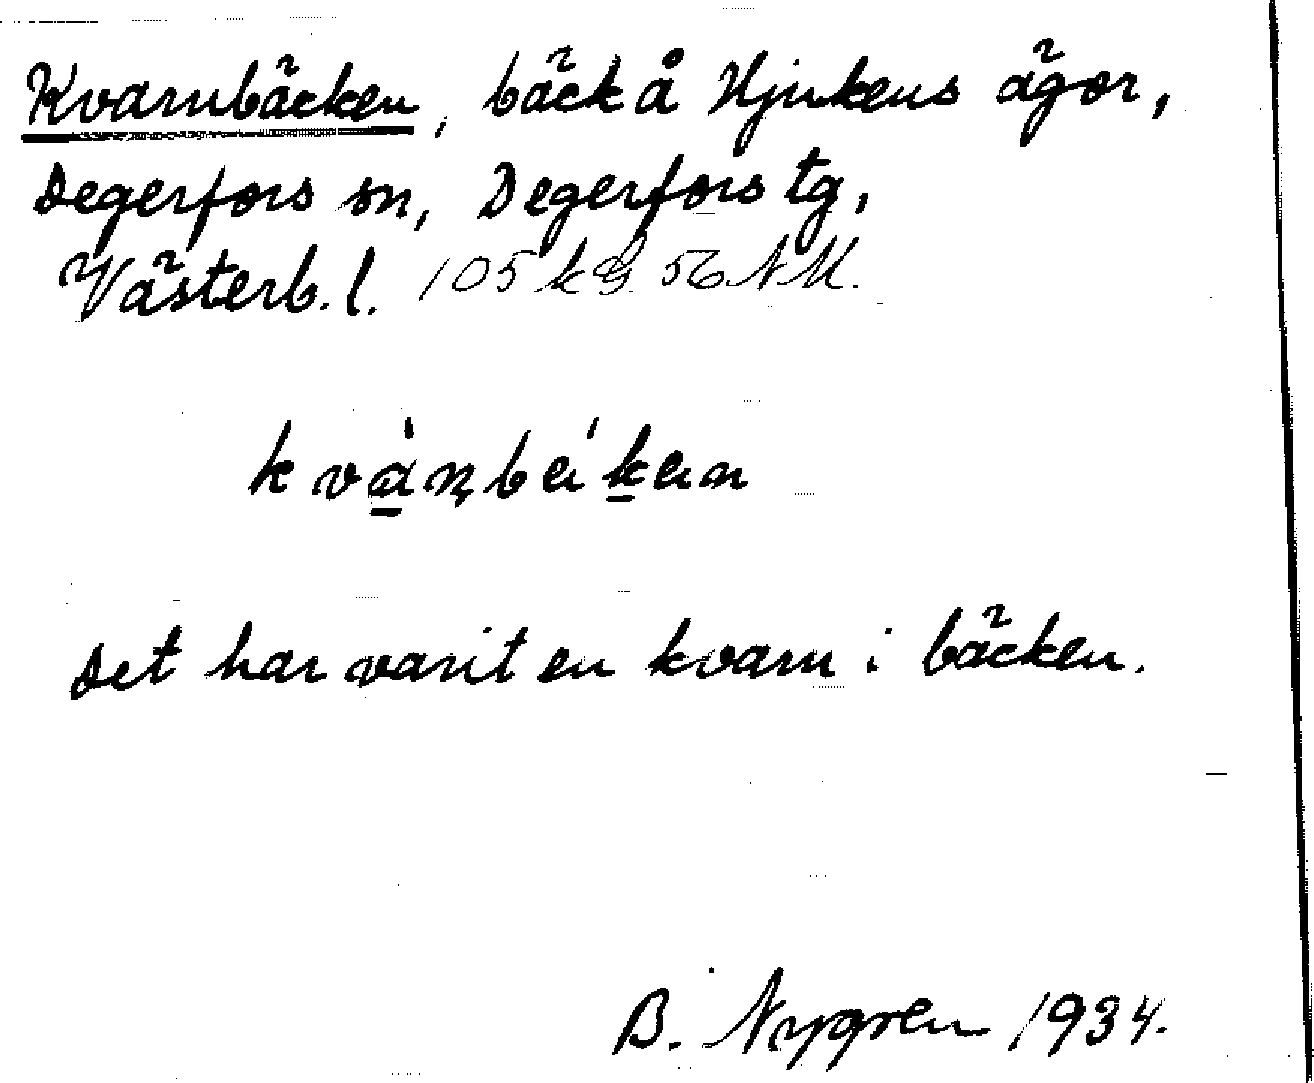 Kvarnbäcken, bäck å Hjukens ägor,
Degerfors sn, Degerfors tg,
Västerb. l. 105 56 NM.
Det har varit en kvarn i bäcken.
B. Nygren 1934.